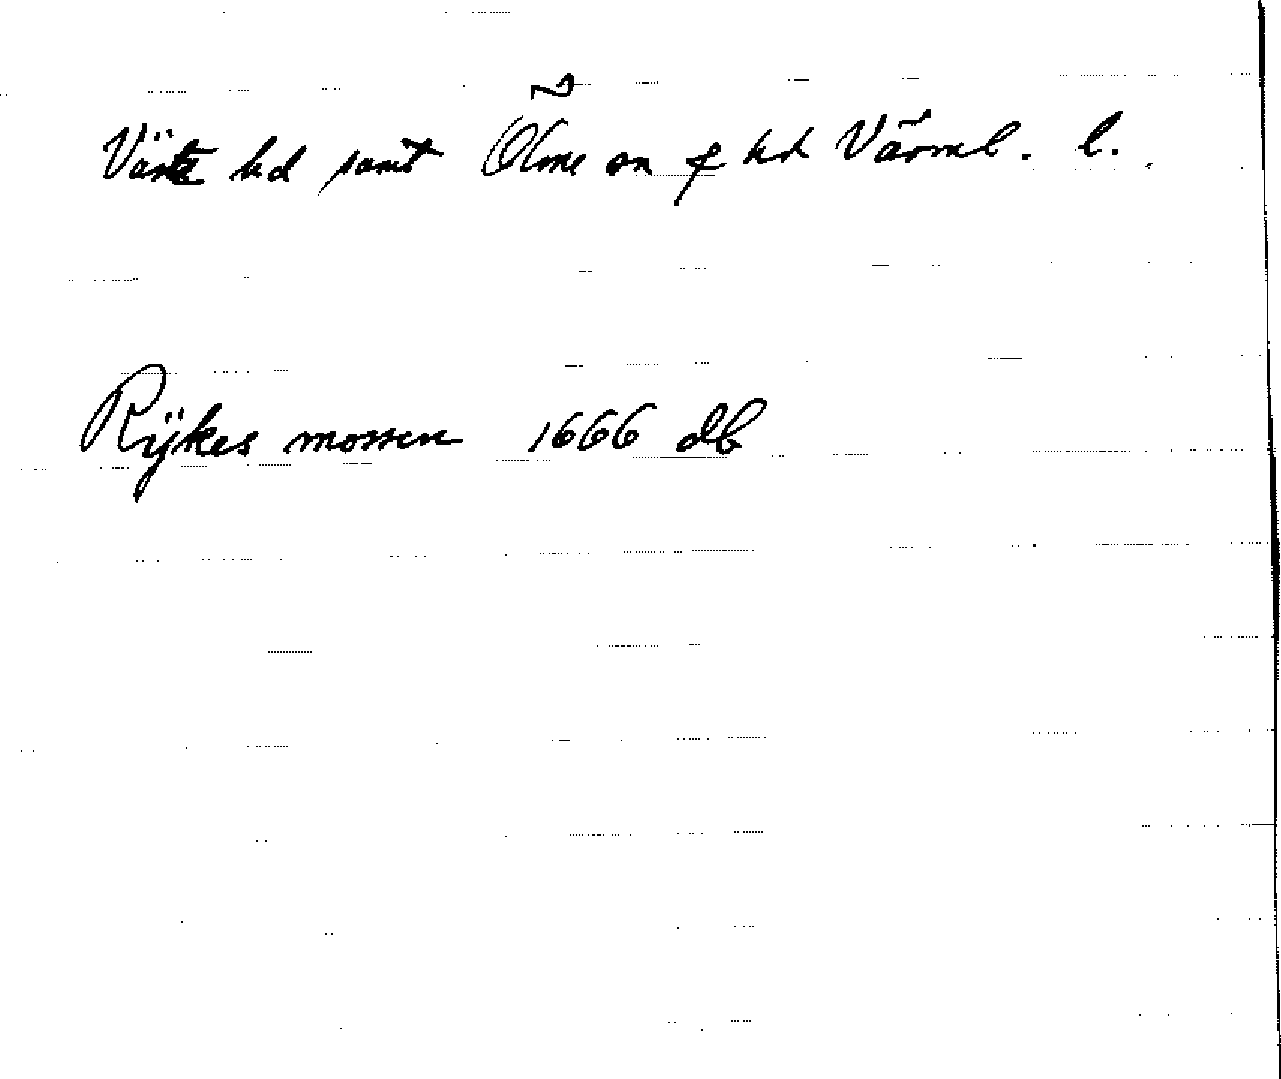 Väse hd samt Ölme sn o hd Värml. l.
Rÿkes mossen 1666 db